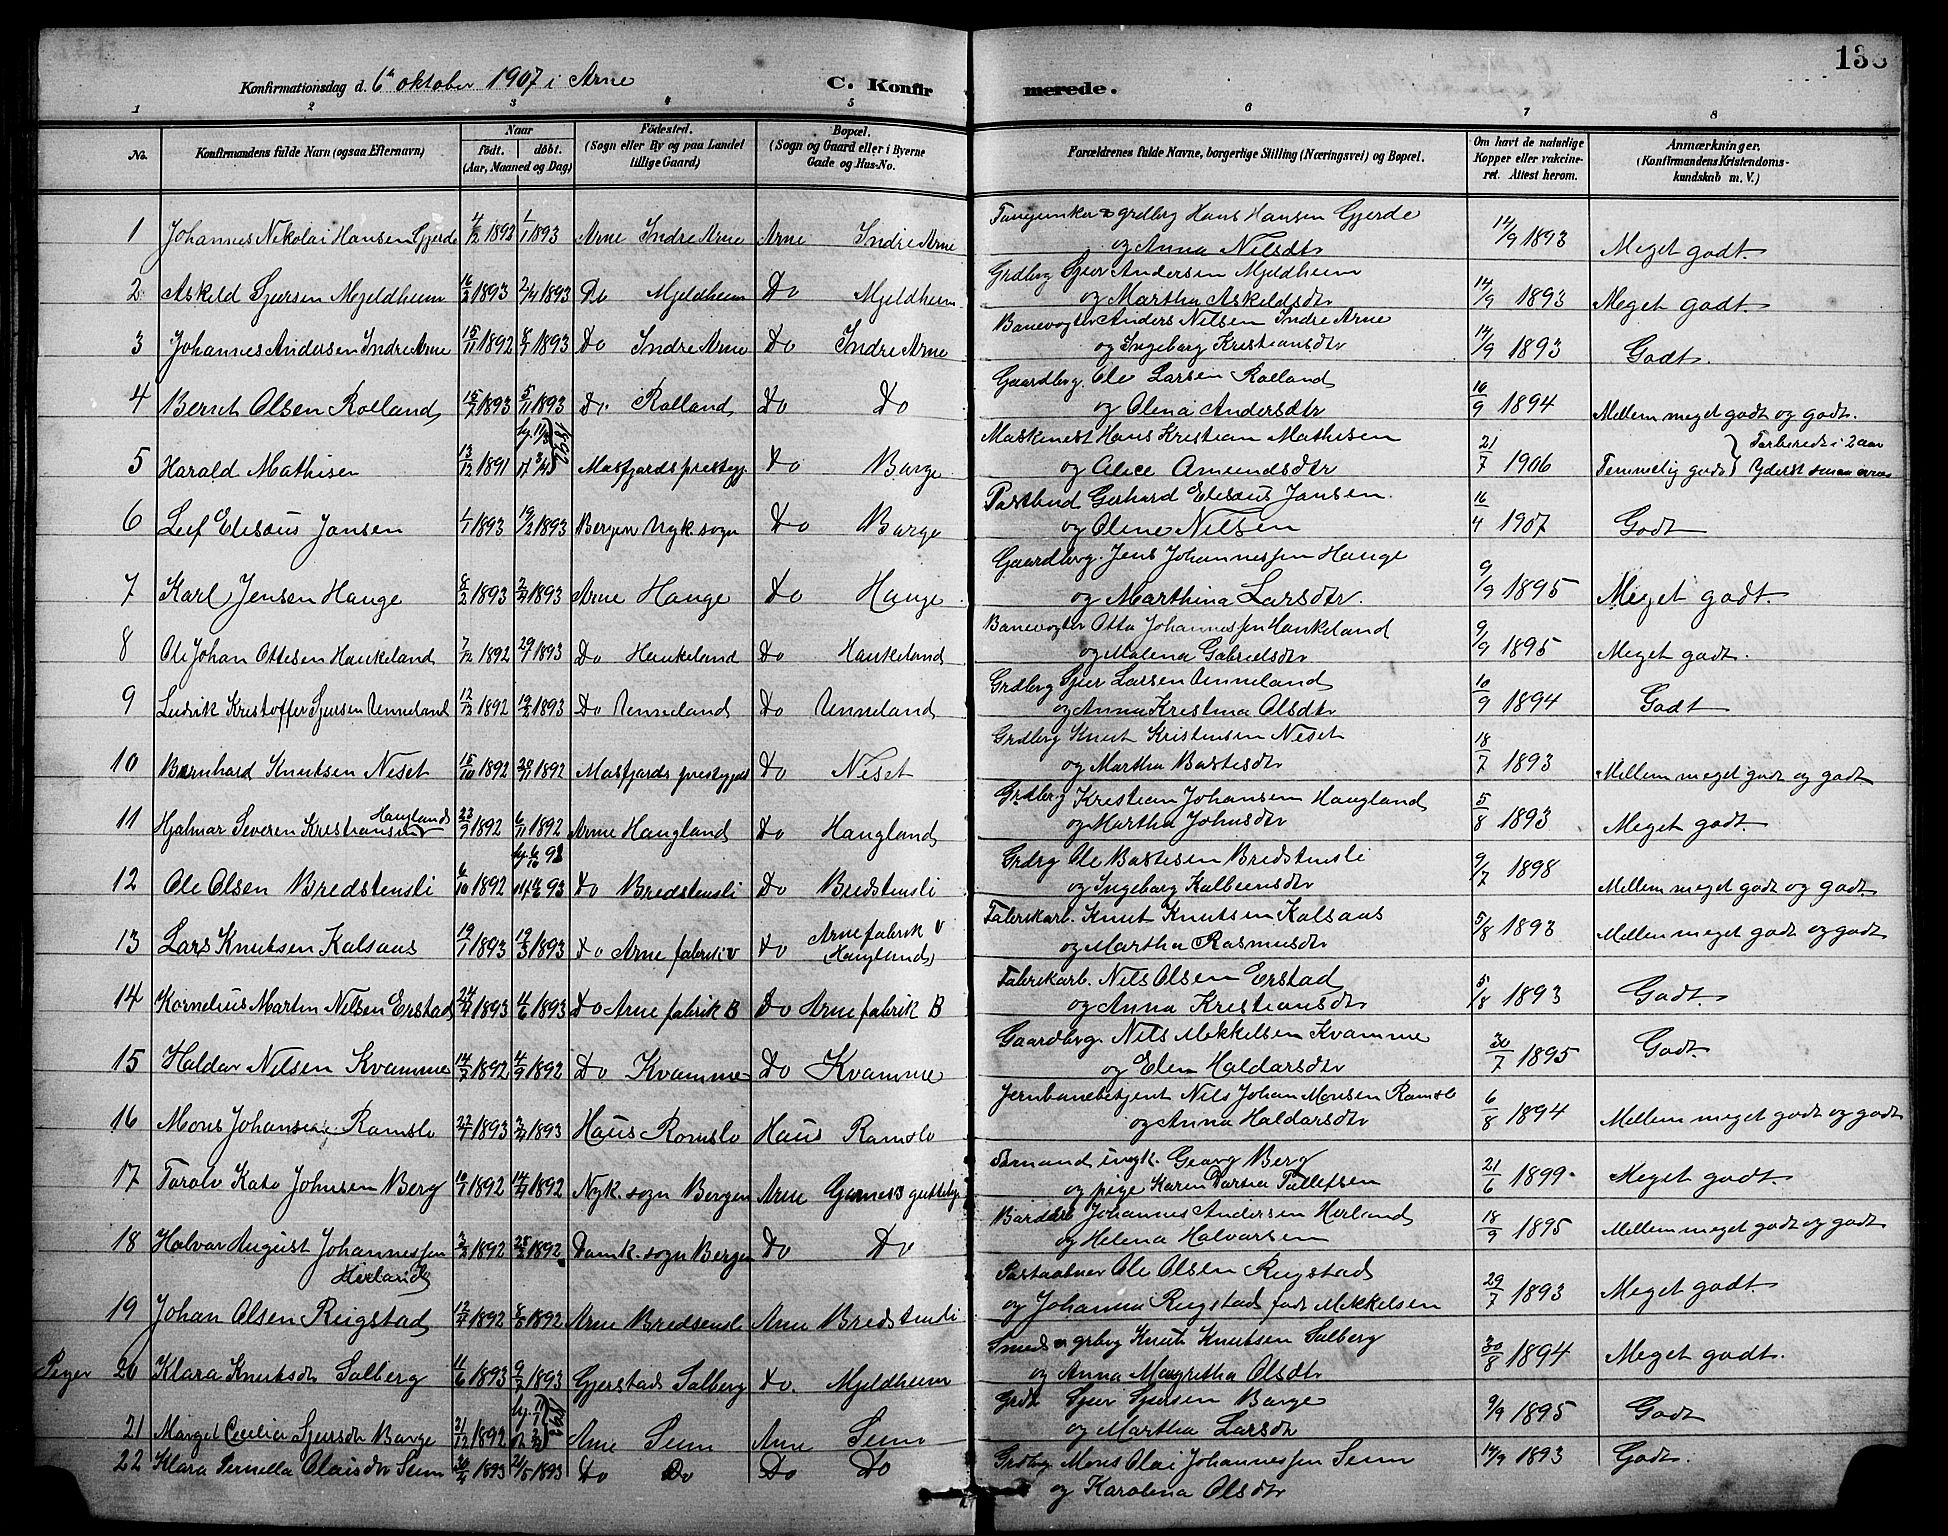 Konfirmationsdag d. 6te oktober 1907 i Arne C. Konfirmerede. 138
1 2 3 4 5 6 7 8
No. Konfirmandens fulde Navn (ogsaa Efternavn) Naar födt. döbt. (Aar, Maaned og Dag) Födested. (Sogn eller By og paa Landet tillige Gaard) Bopæl. (Sogn og Gaard eller i Byerne Gade og Hus-No. Forældrenes fulde Navne, borgerlige Stilling (Næringsvei) og Bopæl. Om havt de naturlige Kopper eller vakcineret. Attest herom. Anmærkninger. (Konfirmandens Kristendomskundskab m. V.)
1 Johannes Nikolai Hansen Gjerde 4/12 1892 1/1 1893 Arne Indre Arne Arne Indre Arne grdbrg Hans Hansen Gjerde
og Anna Nilsdtr 14/9 1893 Meget godt.
2 Askild Sjursen Mjeldheim 16/2 1893 2/4 1893 Do Mjeldheim Do Mjeldheim Grdbrg Sjur Andersen Mjeldheim
og Martha Askildsdtr 14/9 1893 Meget godt
3 Johannes Andersen Indre Arne 15/11 1892 1893 Do Indre Arne Do Indre Arne Banevogter Anders Nilsen Indre Arne
og Ingeborg Kristiansdtr 14/9 1893 Godt.
4 Berent Olsen Rolland 15/7 1893 5/11 1893 Do. Rolland Do Do Gaardbrg. Ole Larsen Rolland
og Olena Andersdtr 16/9 1894 Mellem meget godt og godt.
5 Harald Mathisen 13/12 1891 1892 Masfjords prestegj. Do Borge Maskinist Hans Kristian Mathisen
og Alice Amundsdtr 21/7 1906 Temmelig godt Forberedt i 2 aar
Yderst smaa evner
6 Leif Elisæus Jansen 1/1 1893 19/2 1893 Bergen Nyk. sogn Do Borge Postbud Gerhard Elisæus Jansen
og Oline Nilsen 16/4 1907 Godt
7 Karl Jensen Hauge 8/2 1893 2/4 1893 Arne Hauge Do Hauge Gaardbrg. Jens Johannessen Hauge
og Marthina Larsdtr. 9/9 1895 Meget godt.
8 Ole Johan Ottesen Haukeland 7/12 1892 1893 Do Haukeland Do Haukeland Banevogter Otto Johannessen Haukeland
og Malena Gabrielsdtr 9/9 1895 Meget godt.
9 Ludvik Kristoffer Sjursen Unneland 12/12 1892 19/2 1893 Do Unneland Do Unneland Grdbrg Sjur Larsen Unneland
og Anna Kristina Olsdtr 10/9 1894 Godt
10 Bernhard Knutsen Neset 15/10 1892 20/11 1892 Masfjords prestegjeld Do Neset Grdbrg Knut Kristensen Neset
og Martha Bastesdtr 18/7 1893 Mellem meget godt og godt
11 Hjalmar Severin Kristiansen Haugland 23/9 1892 6/11 1892 Arne Haugland Do Haugland Grdbrg Kristian Johansen Haugland
og Martha Johnsdtr 5/8 1893 Meget godt.
12 Ole Olsen Bredstensli 6/10 1892 Do Bredstensli Do Bredstensli Grdbrg Ole Bastesen Bredstensli
og Ingeborg Kolbeinsdtr 9/7 1898 Mellem meget godt og godt.
13 Lars Knutsen Kalsaas 19/1 1893 19/3 1893 Do Arne fabrik v Do Arne fabrik v
(Haugland) Fabrikarb. Knut Knutsen Kalsaas
og Martha Rasmusdtr 5/8 1893 Mellem meget godt og godt
14 Kornelius Martin Nilsen Erstad 24/4 1893 4/6 1893 Do Arne fabrik B Do Arne fabrik B Fabrikarb. Nils Olsen Erstad
og Anna Kristiansdtr 5/8 1893 Godt.
15 Haldor Nilsen Kvamme 14/7 1892 4/9 1892 Do Kvamme Do Kvamme Gaardbrg. Nils Mikkelsen Kvamme
og Elen Haldorsdtr 30/7 1895 Godt
16 Mons Johansen Romslo 22/1 1893 1893 Haus Romslo Haus Romslo Jernbanebetjent Nils Johan Monsen Romslo
og Anna Haldorsdtr 6/8 1894 Mellem meget godt og godt
17 Torolv Kato Johnsen Berg 1892 1892 Nyk. sogn Bergen Arne Garnes guttehj. Formand ungk. Georg Berg
og pige Karen Dortea Tollefsen 21/6 1899. Meget godt.
18 Halvor August Johannessen
Herland 1892 28/2 1892 Domk. sogn Bergen Do Do Johannes Andersen Herland
og Helena Halvorsen 18/9 1895 Mellem meget godt og godt
19 Johan Olsen Rugstad 12/7 1892 8/8 1892 Arne Bredsensli Arne Bredstensli Postaabner Ole Olsen Rugstad
og Johanna Rugstad født Mikkelsen 29/7 1893 Meget godt
Piger 20 Klara Knutsdtr Solberg 11/6 1893 9/7 1893 Gjerstad Solberg Do. Mjeldheim Smed og grbrg Knut Knutsen Solberg
og Anna Magretha Olsdtr 30/8 1894 Meget godt.
21 Marget Cecilia Sjursdtr Borge 21/12 1892 Arne Seim Arne Seim Grdb Sjur Sjursen Borge
og Martha Larsdtr 9/9 1895 Godt
22 Klara Pernella Olaisdtr Seim 1893 21/5 1893 Do Do Do Do Grdbrg Mons Olai Johannessen Seim
og Karolina Olsdtr 14/9 1893 Godt.